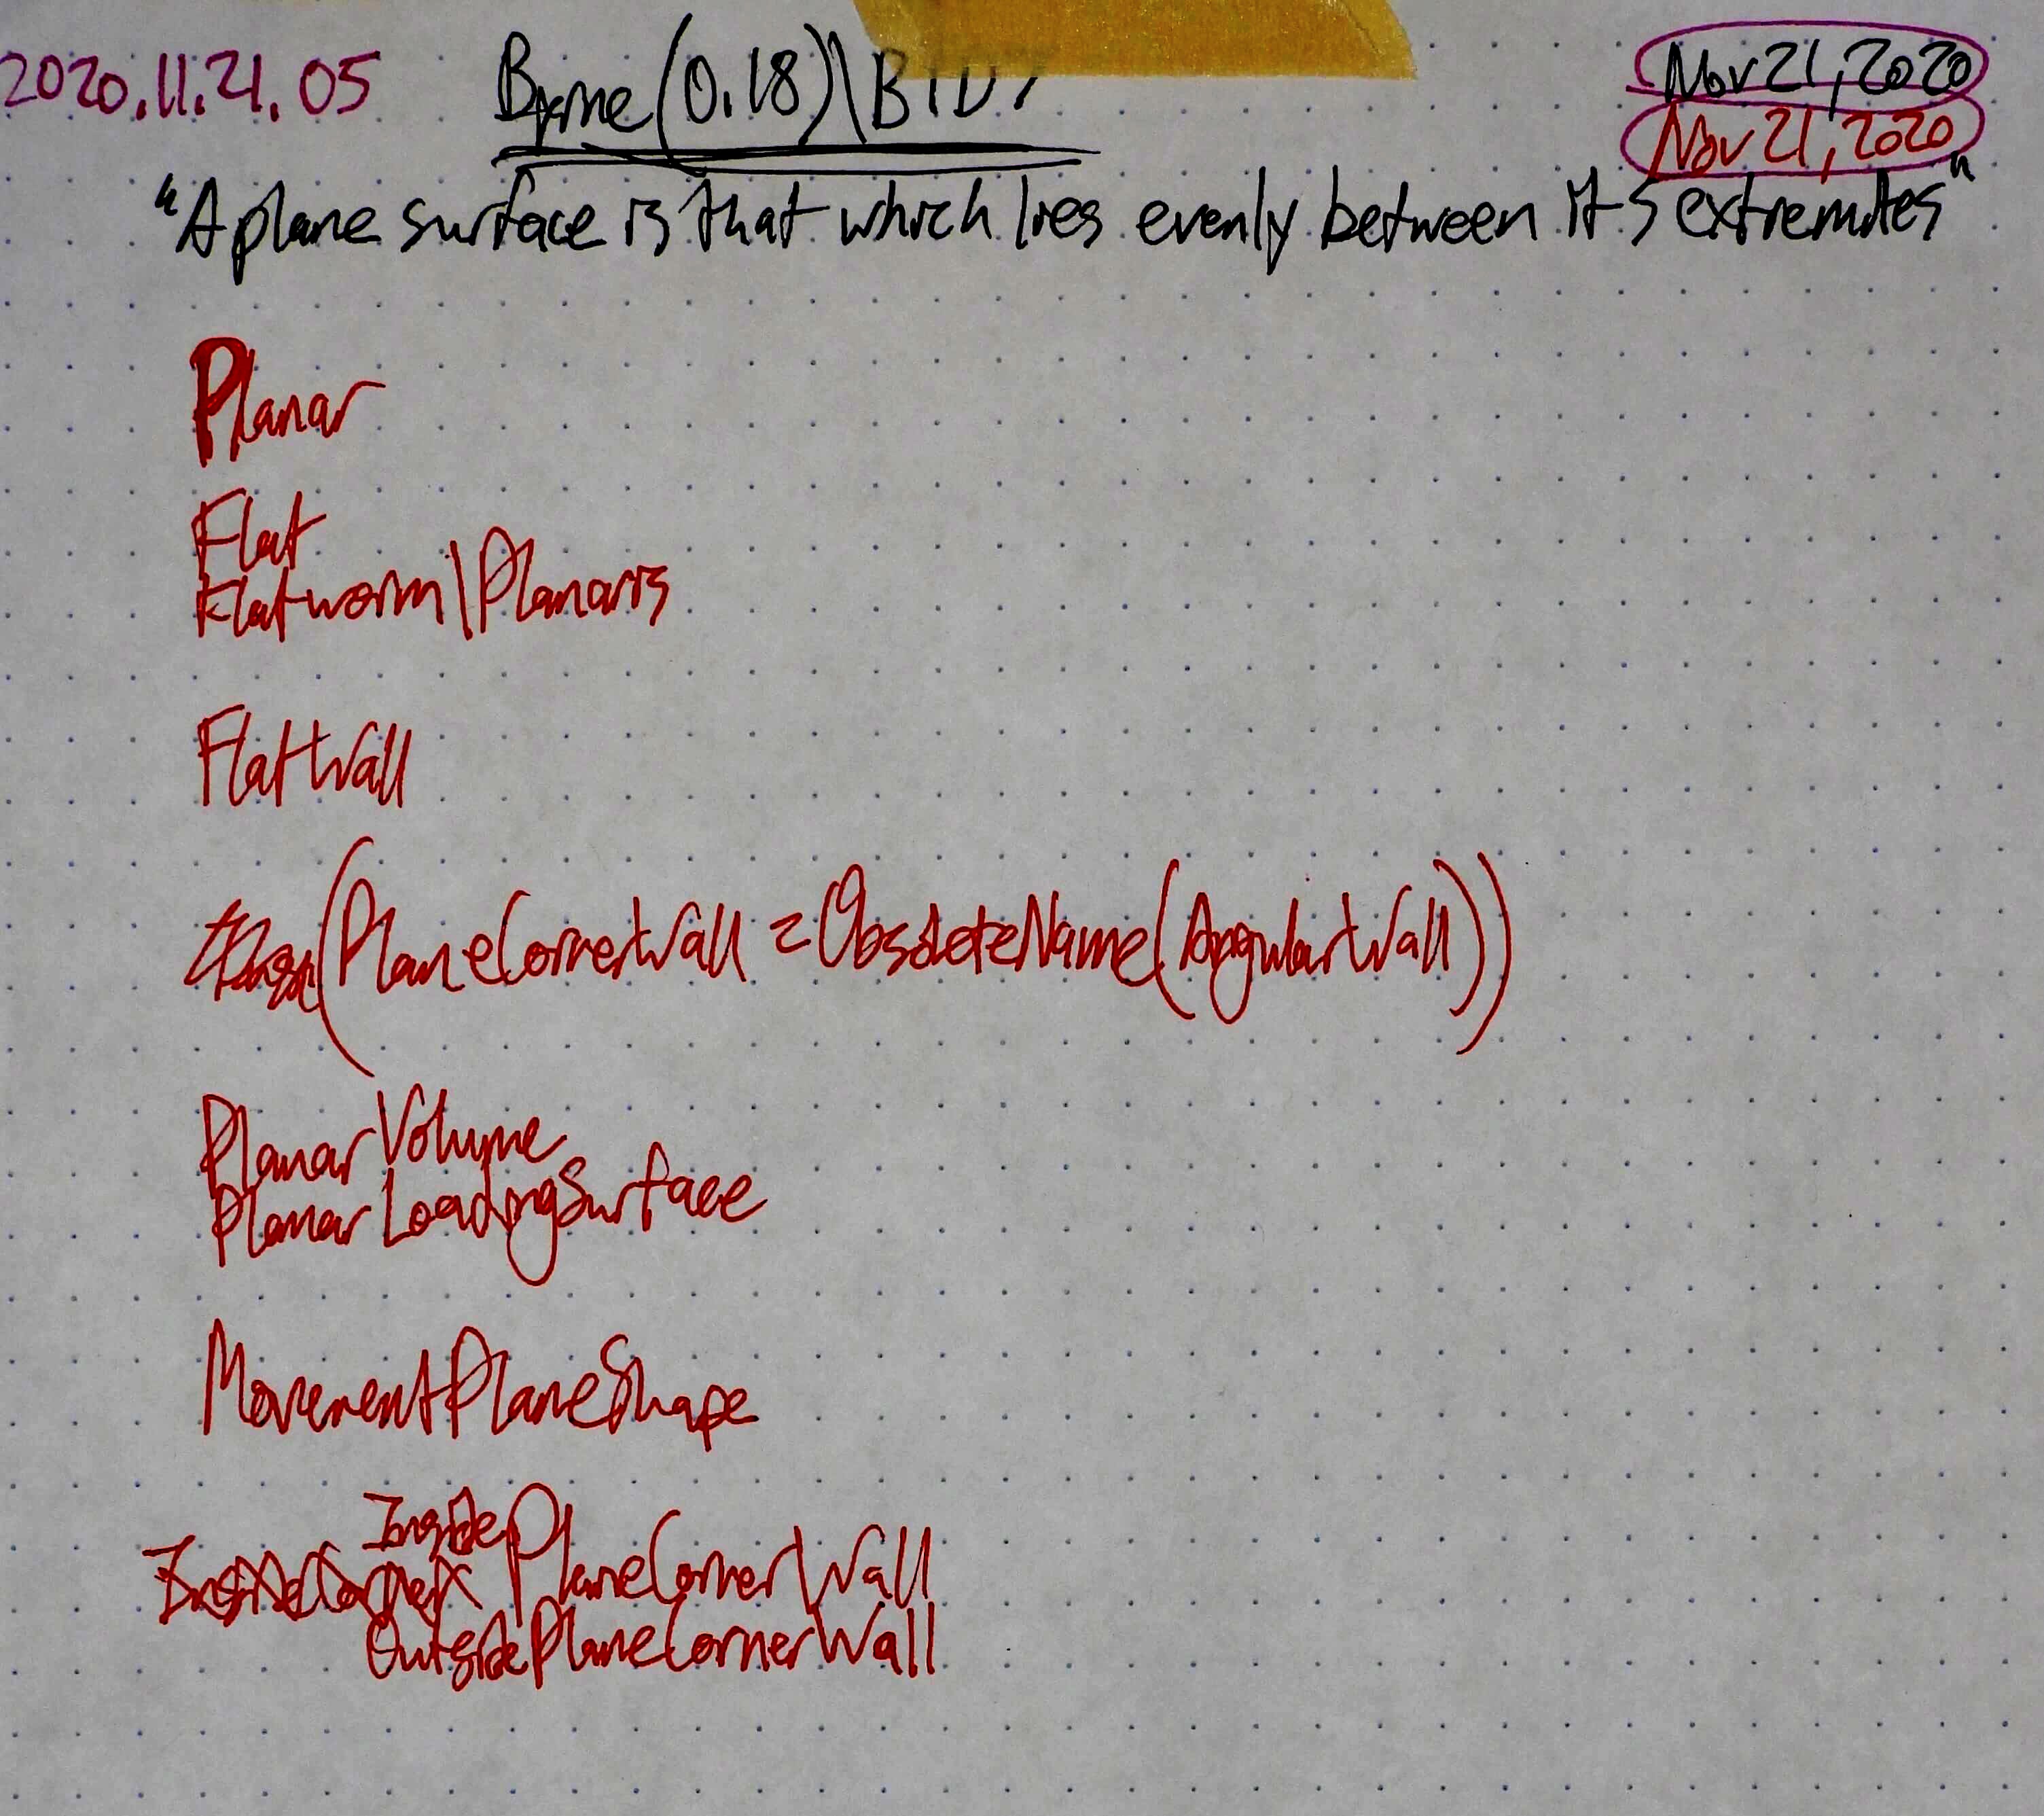 2020.11.21.05 Byrne(0.18)\B1D7 Nov 21, 2020
Nov 21, 2020
"A plane surface is that which lies evenly between it's extremites"
Planar
Flat
Flatworm\Planaris
FlatWall
(PlaneCornerWall = ObsoleteName(AngularWall))
PlanarVolume
PlanarLoadingSurface
MovementPlaneShape
InsidePlaneCornerWall
OutsidePlaneCornerWall